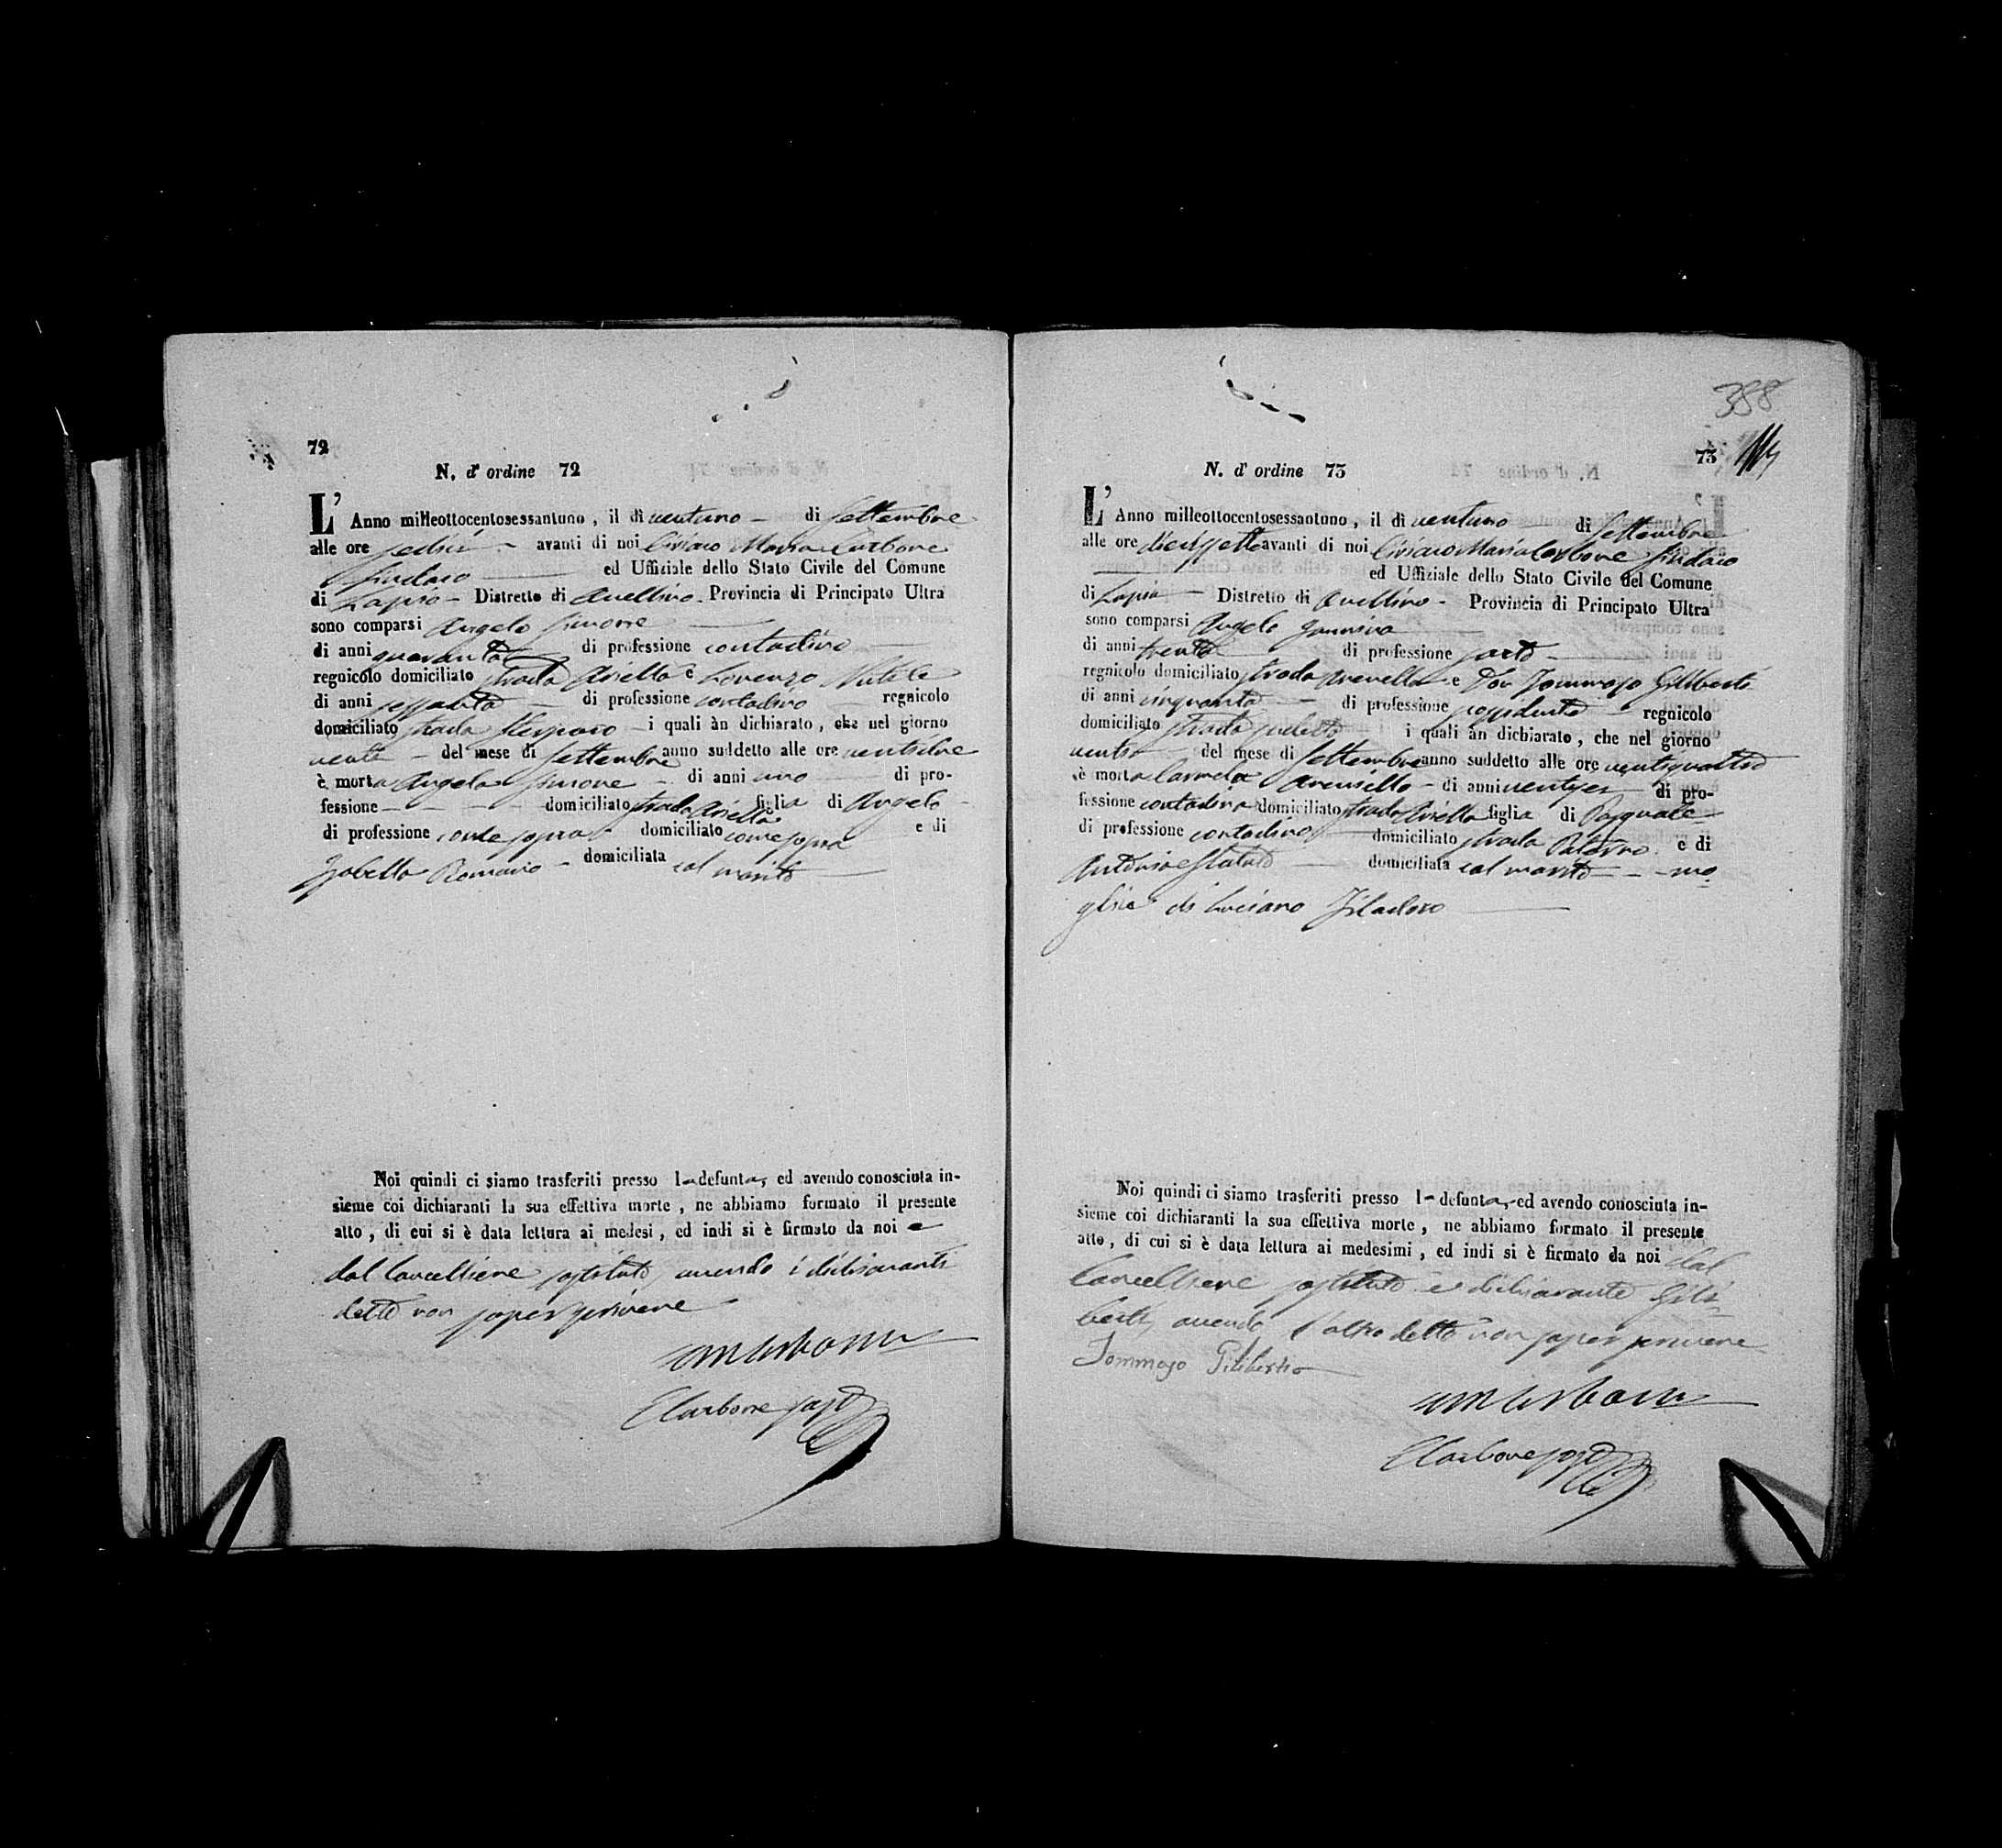 72
N. d' ordine 72
L' Anno milleottocentosessantuno, il dì ventuno di Settembre
alle ore sedici avanti di noi Ciriaco Maria Carbone
Sindaco ed Uffiziale dello Stato Civile del Comune
di Lapio Distretto di Avellino Provincia di Principato Ultra
sono comparsi Angelo Simone
di anni quaranta di professione contadino
regnicolo domiciliato strada Airella e Lorenzo
di anni sessanta di professione contadino regnicolo
domiciliato strada i quali àn dichiarato, che nel giorno
venti del mese di Settembre anno suddetto alle ore ventidue
è morta Angela Simone di anni uno di pro-
fessione domiciliato strada Airella figlia di Angelo
di professione come sopra domiciliato come sopra e di
Isabella Romano domiciliata col marito
Noi quindi ci siamo trasferiti presso la defunta, ed avendo conosciuta in-
sieme coi dichiaranti la sua effettiva morte, ne abbiamo formato il presente
atto, di cui si è data lettura ai medesi, ed indi si è firmato da noi e
dal Cancelliere sostituto, avendo i dichiaranti
detto non saper scrivere
CMCarbone
Carbone sosto
388
73
N. d' ordine 73
L' Anno milleottocentosessantuno, il dì ventuno di Settembre
alle ore diecissette avanti di noi Ciriaco Maria Carbone Sindaco
ed Uffiziale dello Stato Civile del Comune
di Lapio Distretto di Avellino Provincia di Principato Ultra
sono comparsi Angelo
di anni trenta di professione sarto
regnicolo domiciliato strada e Don Tommaso Giliberti
di anni cinquanta di professione possidente regnicolo
domiciliato strada i quali àn dichiarato, che nel giorno
venti del mese di Settembre anno suddetto alle ore ventiquattro
è morta Carmela di anni ventisei di pro-
fessione contadina domiciliato strada Airella figlia di Pasquale
di professione contadino domiciliato strada Paterno e di
Antonia domiciliata col marito mo-
glie di Luciano
Noi quindi ci siamo trasferiti presso la defunta, ed avendo conosciuta in-
sieme coi dichiaranti la sua effettiva morte, ne abbiamo formato il presente
atto, di cui si è data lettura ai medesimi, ed indi si è firmato da noi dal
Cancelliere sostituto e dichiarante Gili-
berti, avendo l'altro detto non saper scrivere
Tommaso Giliberti
CMCarbone
Carbone sosto